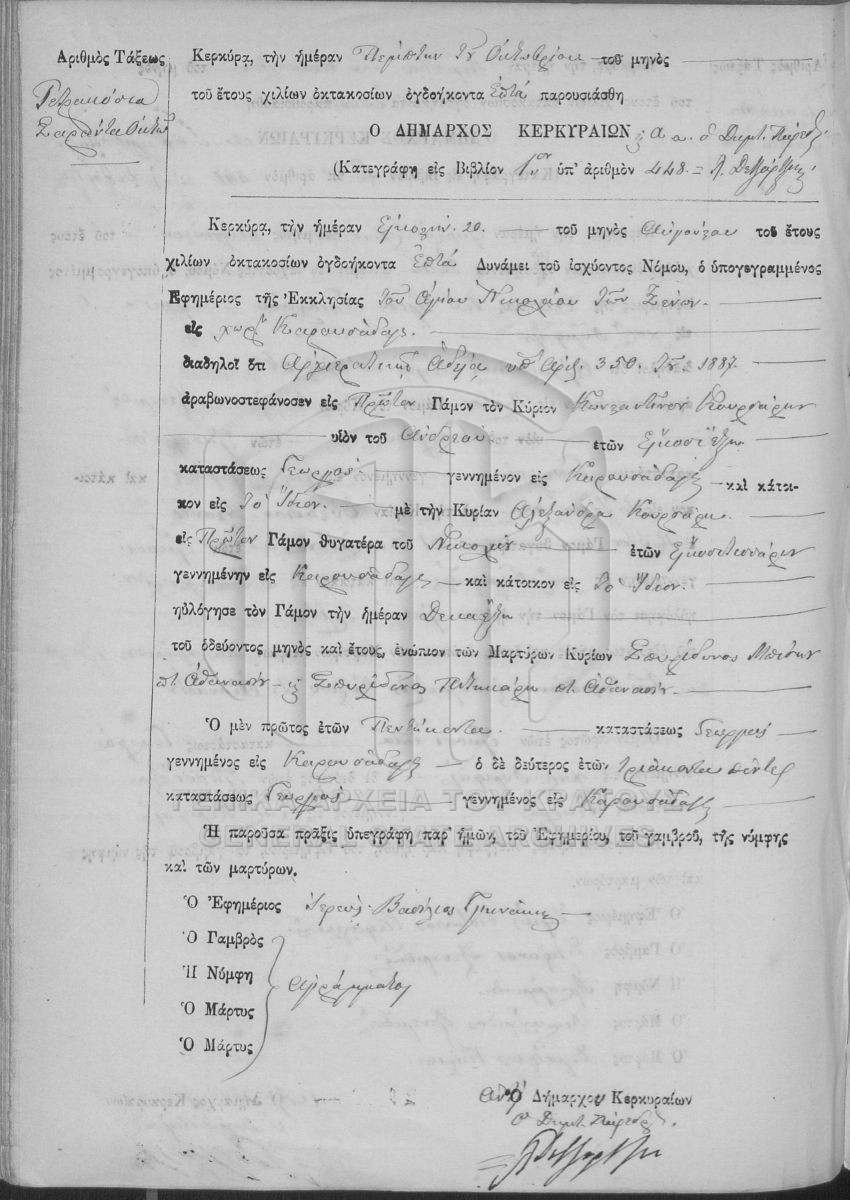 Ἀριθμὸς Τάξεως
Τετρακόσια
Σαράντα Ὀκτώ
Κερκύρᾳ, τὴν ἡμέραν Πέμπτην τοῦ Ὀκτωβρίου τοῦ μηνὸς
τοῦ ἔτους χιλίων ὀκτακοσίων ὀγδοήκοντα ἑπτά παρουσιάσθη
Ὁ ΔΗΜΑΡΧΟΣ ΚΕΡΚΥΡΑΙΩΝ, ὁ Δημτ. Πάρεδρ
(Κατεγράφη εἰς Βιβλίον 1ον ὑπ' ἀριθμὸν 448.
Κερκύρᾳ, τὴν ἡμέραν 20. τοῦ μηνὸς Αὐγούστου τοῦ ἔτους
χιλίων ὀκτακοσίων ὀγδοήκοντα ἑπτά Δυνάμει τοῦ ἰσχύοντος Νόμου, ὁ ὑπογεγραμμένος
Ἐφημέριος τῆς Ἐκκλησίας τοῦ Ἁγίου Νικολάου τῶν Ξένων.
εἰς χωρ. Καρουσάδαις.
διαδηλοῖ ὅτι Ἀρχιερατικῇ Ἀδείᾳ ὑπ' Ἀριθ. 350. τοῦ 1887.
ἀραβωνοστεφάνοσεν εἰς Πρῶτον Γάμον τὸν Κύριον Κωνσταντῖνον Κουρσάρην
υἱὸν τοῦ Ἀνδρέου ἐτῶν Εἴκοσι ἕξη
καταστάσεως Γεωργός. γεννημένον εἰς Καρουσάδαις καὶ κάτοι-
κον εἰς τὸ Ἴδιον. μὲ τὴν Κυρίαν Ἀλεξάνδρα Κουρσάρη
εἰς Πρῶτον Γάμον θυγατέρα τοῦ Νικολῆ ἐτῶν Εἴκοσιτεσσάρων
γεννημένην εἰς Καρουσάδαις καὶ κάτοικον εἰς τὸ Ἴδιον.
ηὐλόγησε τὸν Γάμον τὴν ἡμέραν Δεκαέξη
τοῦ ὁδεύοντος μηνὸς καὶ ἔτους, ἐνώπιον τῶν Μαρτύρων Κυρίων Σπυρίδωνος
πτ. Ἀθανασίου Σπυρίδωνος πτ. Ἀθανασίου.
Ὁ μὲν πρῶτος ἐτῶν Πενῆκοντα. καταστάσεως Γεωργός
γεννημένος εἰς Καρουσάδαις ὁ δὲ δεύτερος ἐτῶν τριάκοντα πέντε
καταστάσεως Γεωργός γεννημένος εἰς Καρουσάδαις
ΓΕΝΙΚΑ ΑΡΧΕΙΑ ΤΟΥ ΚΡΑΤΟΥΣ
GENERAL STATE ARCHIVES
Ἡ παροῦσα πρᾶξις ὑπεγράφη παρ' ἡμῶν, τοῦ Ἐφημερίου, τοῦ γαμβροῦ, τῆς νύμφης
καὶ τῶν μαρτύρων.
Ὁ Ἐφημέριος Ἱερεύς Βασίλειος
Ὁ Γαμβρὸς
Ἡ Νύμφη
ἀγράμματοι
Ὁ Μάρτυς
Ὁ Μάρτυς
Ὁ Δήμαρχος Κερκυραίων
ὁ Δημτ. Πάρεδρ.